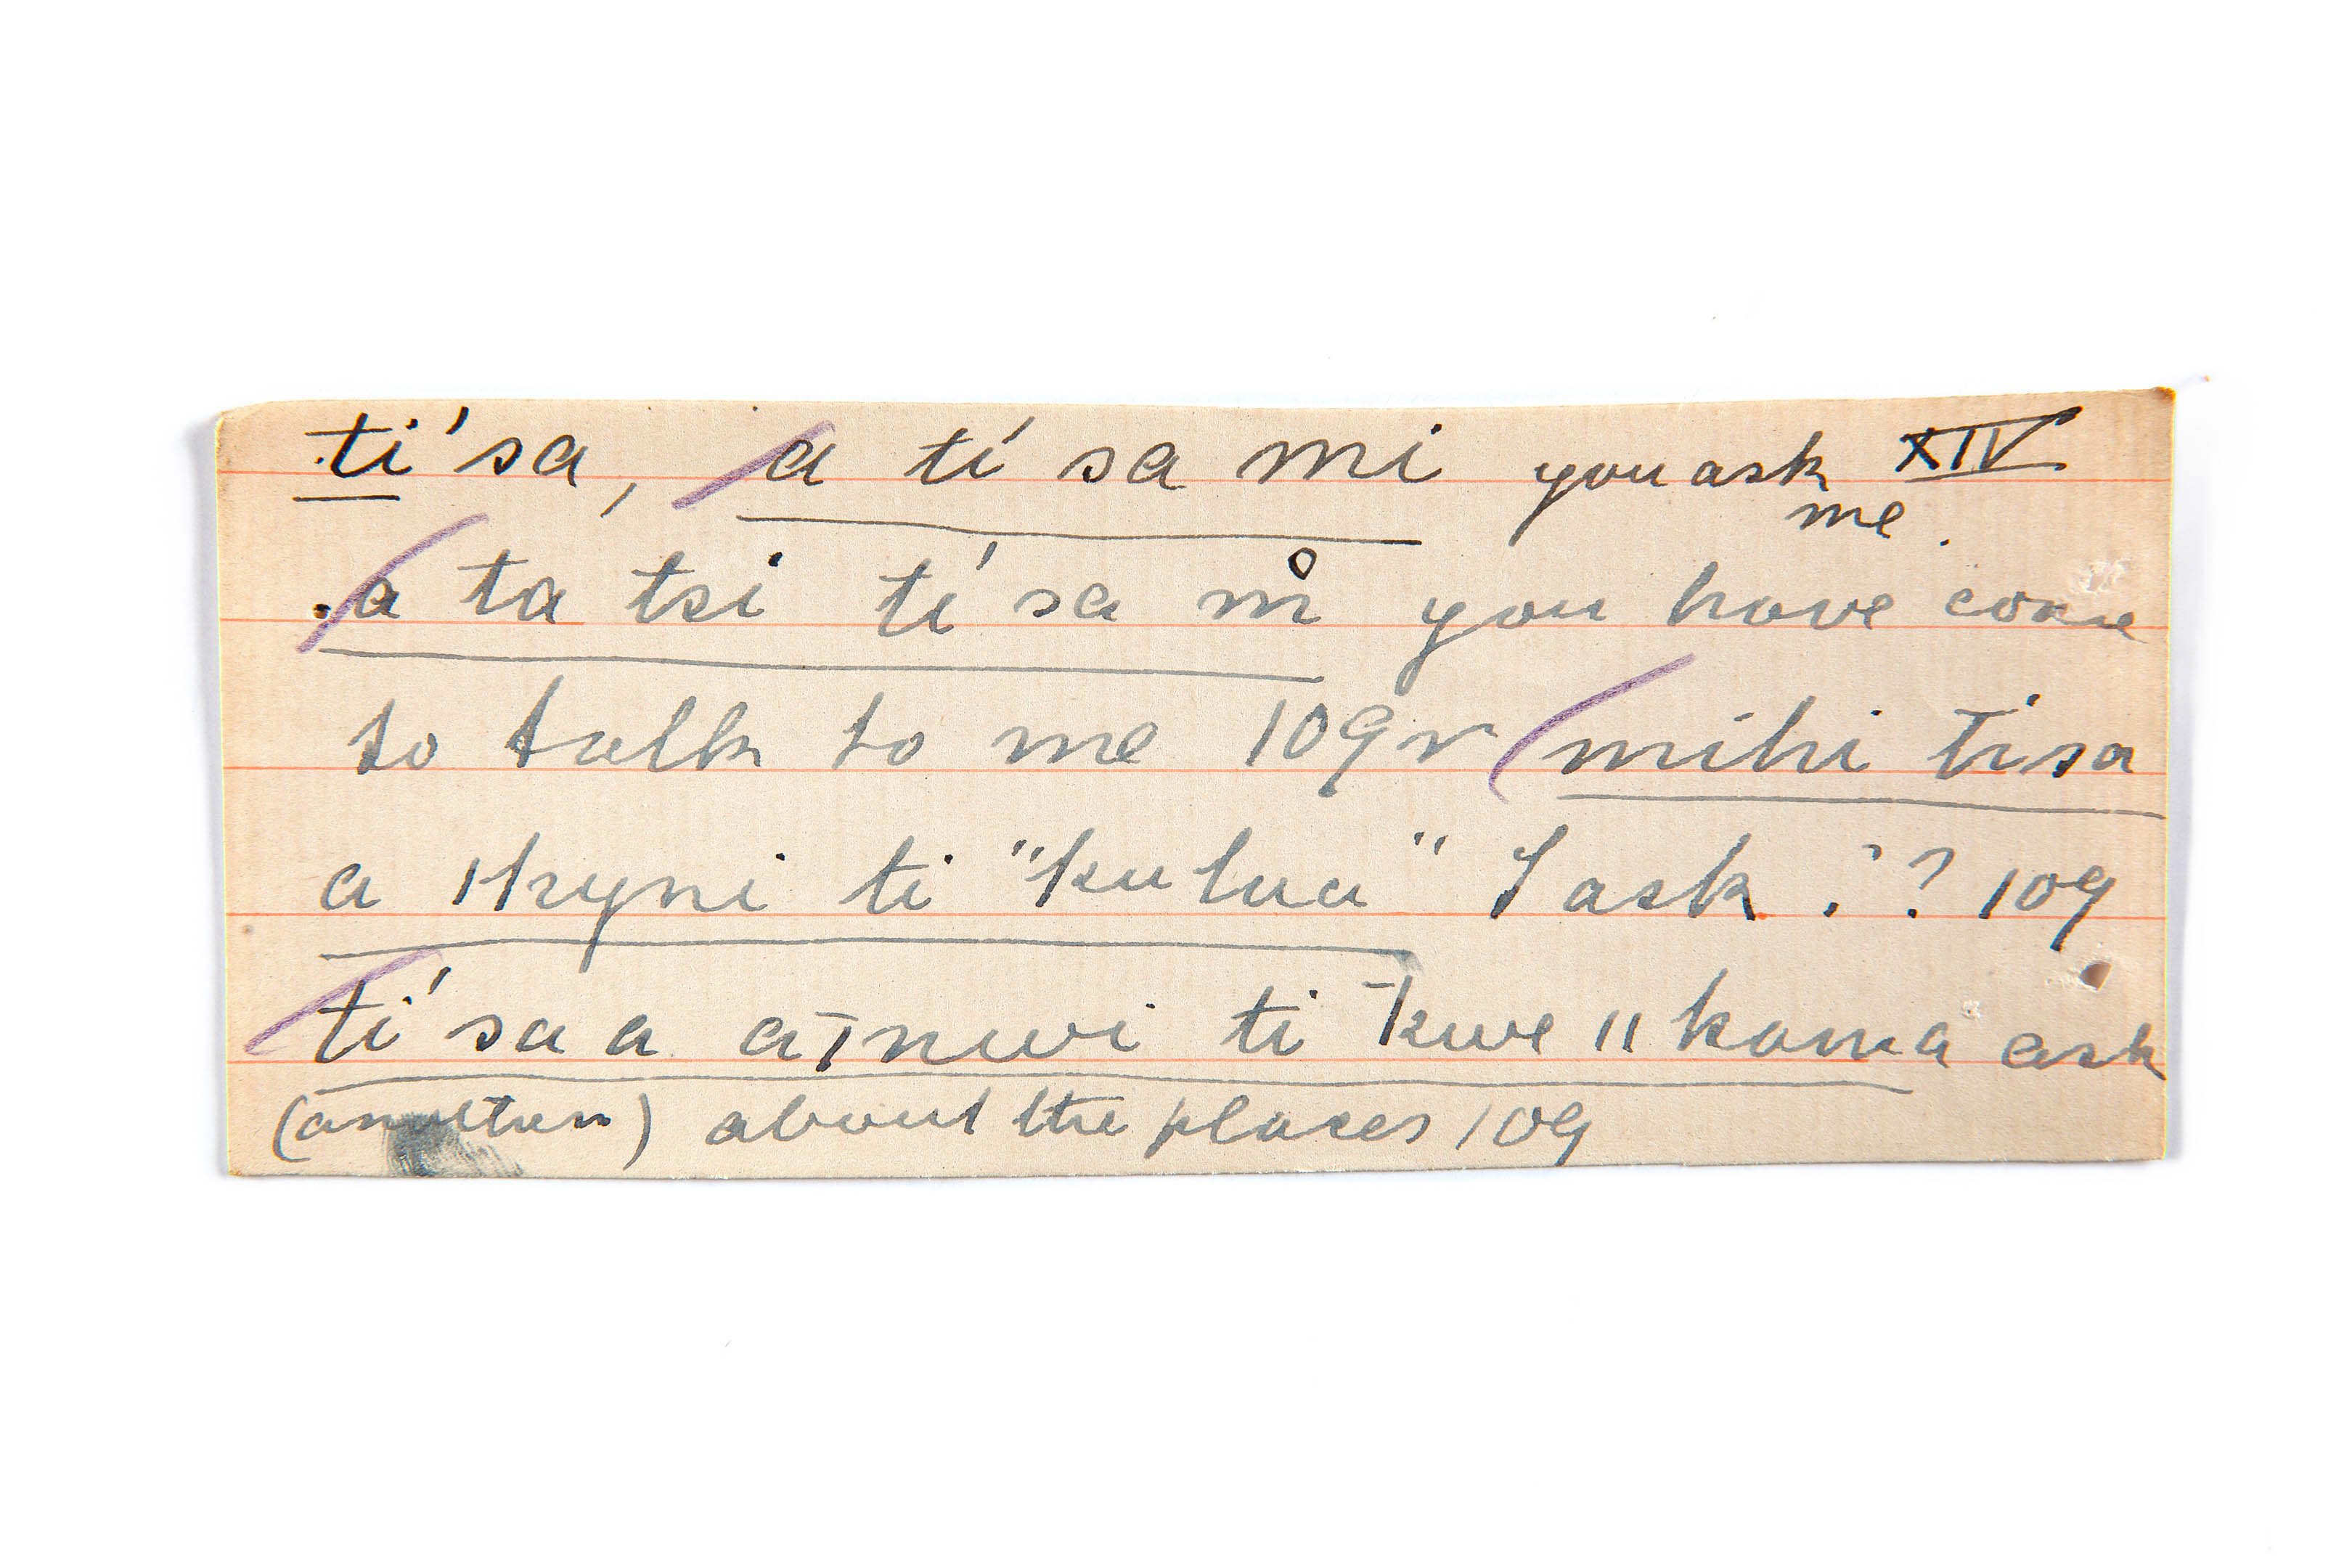 ti´sa, a tí sa mi you ask XIV
me.
a ta tsi tí sa m̊ you have come
to talk to me 109v mihi tisa
a ıhyni ti "kulua" I ask ? 109
ti´sa a nwi ti kwe ıı koma ask
(another) about the places 109